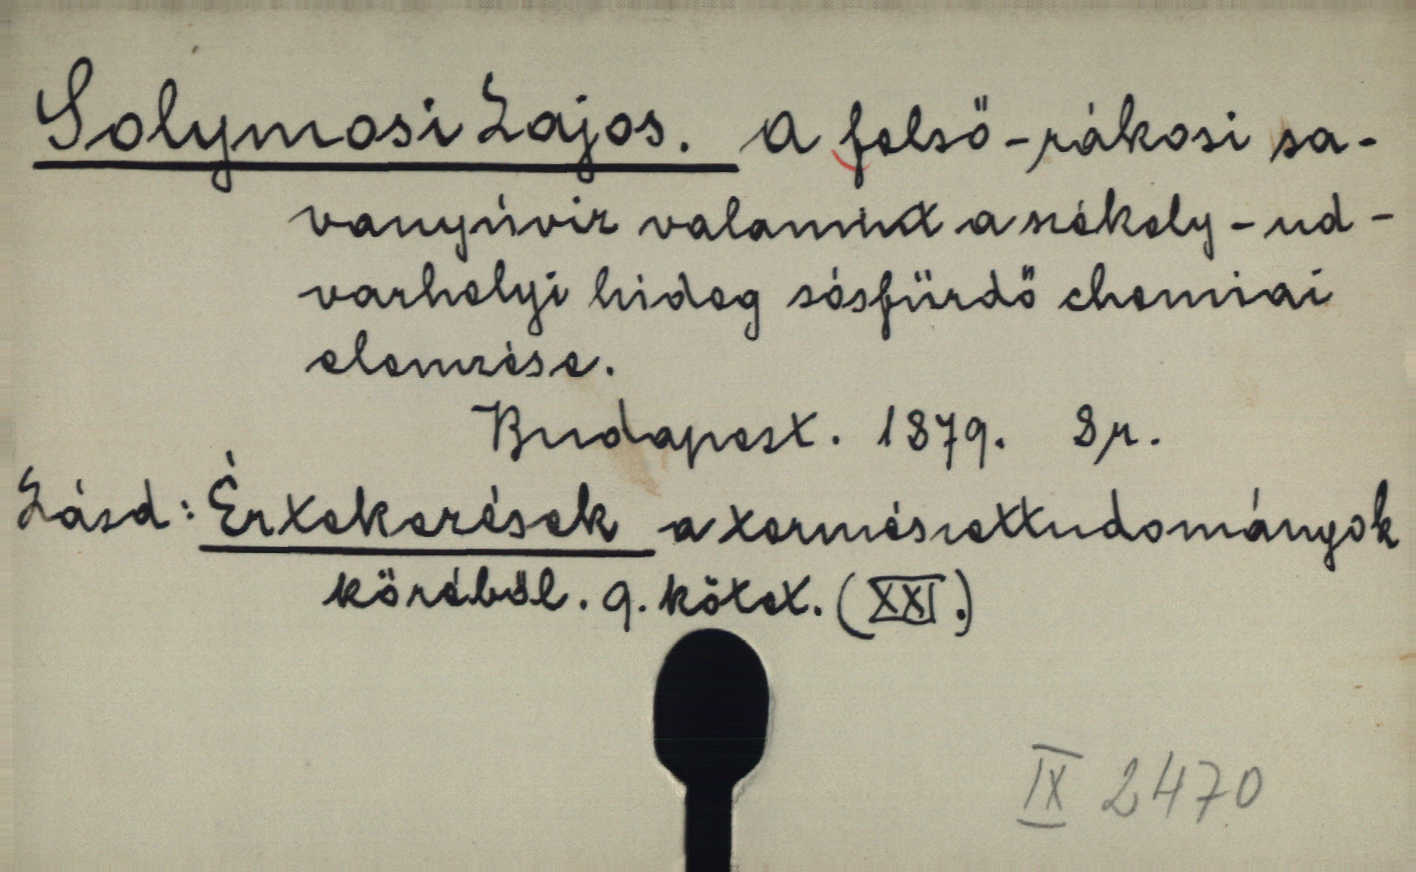 Solymosi Lajos. A felső-rákosi sa-
vanyúviz valamint a székely-ud-
varhelyi hideg sósfürdő chemiai
elemzése.
Budapest. 1879. 8r.
Lásd: Értekezések a természettudományok
köréből. 9. kötet. (XXI.)
IX 2470